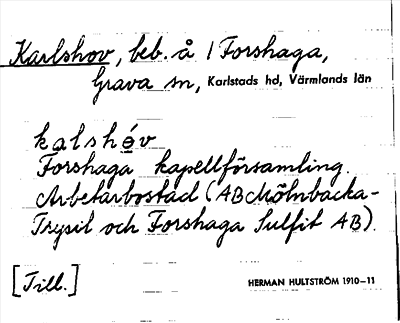 Karlshov, beb. å 1 Forshaga,
Grava sn, Karlstads hd, Värmlands län
kalshóv
Forshaga kapellförsamling.
Arbetarbostad (AB Mölnbacka-
Trysil och Forshaga Sulfit AB).
[Till.]
HERMAN HULTSTRÖM 1910–11